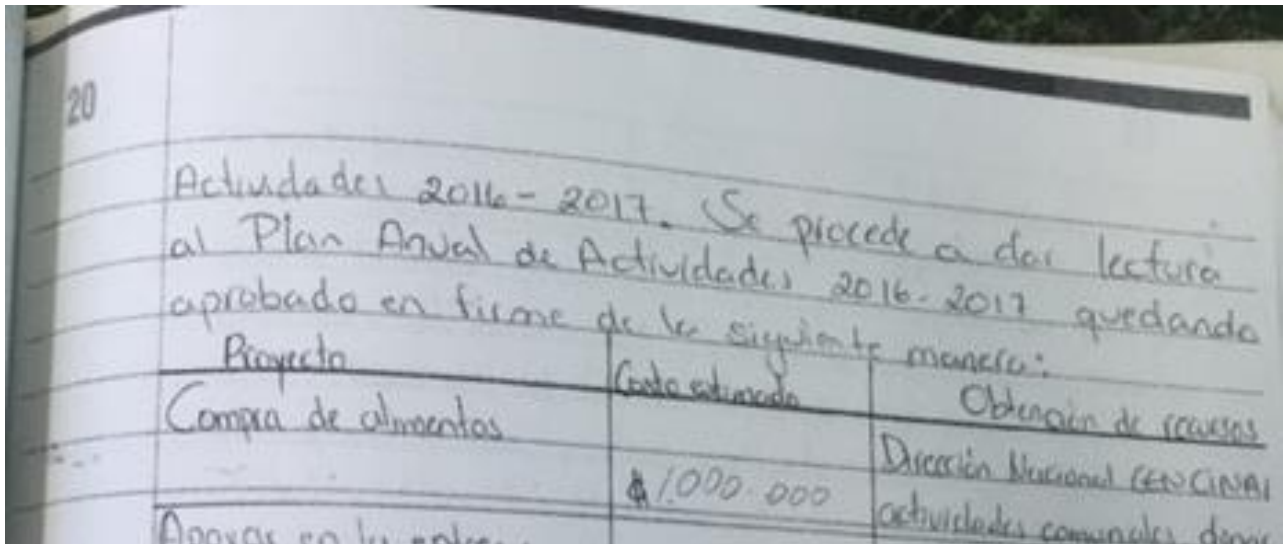 20
Actividades 2016-2017. Se procede a dar lectura
al Plan Anual de Actividades 2016-2017 quedando
aprobado en firme de la siguiente manera:
Proyecto Costo estimado Obtención de recursos
Compra de alimentos
Dirección Nacional CENCINAI
₡1.000.000 actividades comunales
Apoyar en la